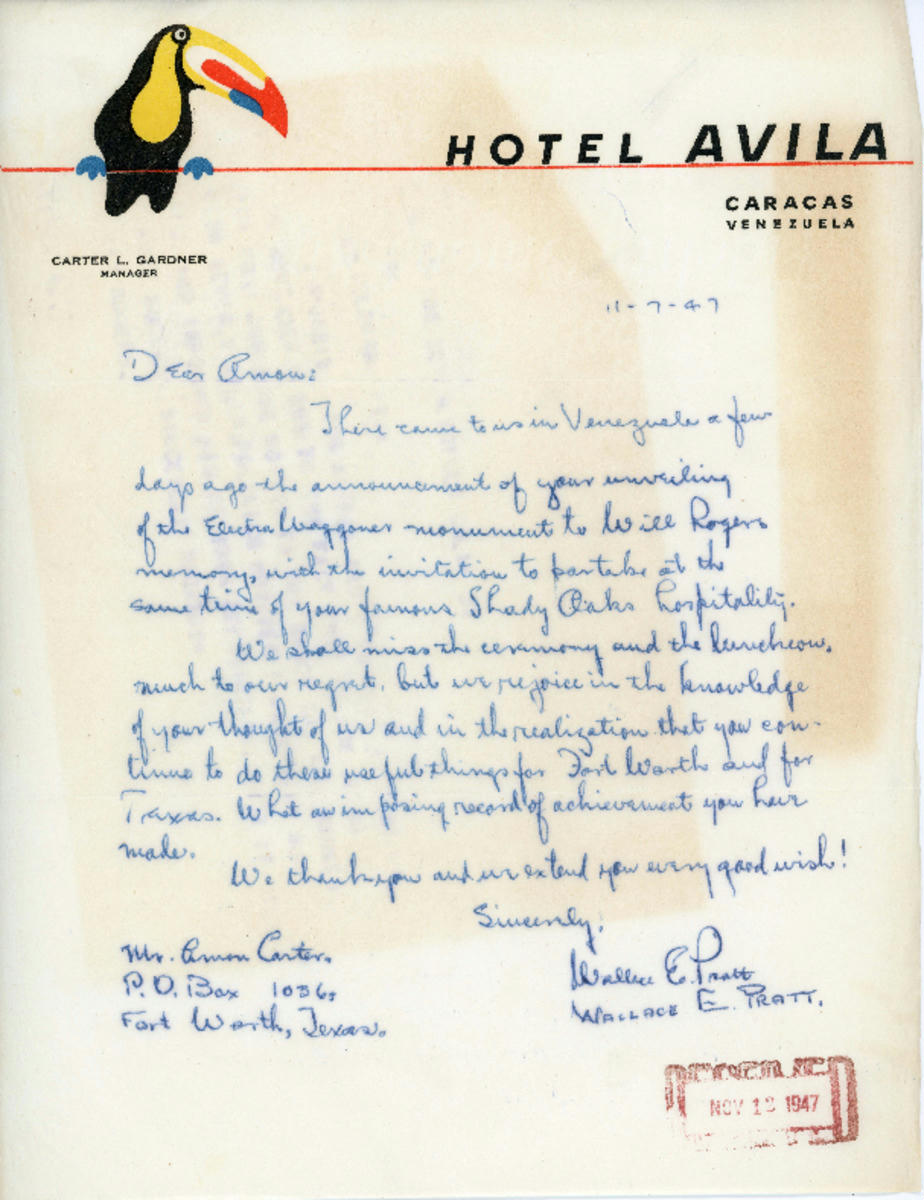 HOTEL AVILA
CARACAS
VENEZUELA
CARTER L. GARDNER
MANAGER
11-7-47
Dear Amon:
There came to us in Venezuela a few
days ago the announcement of your unveiling
of the Electra Waggoner monument to Will Rogers
memory, with the invitation to partake at the
same time of your famous Shady Oaks hospitality.
We shall miss the ceremony and the luncheon,
much to our regret, but we rejoice in the knowledge
of your thought of us and in the realization that you con-
tinue to do these useful things for Fort Worth and for
Texas. What an imposing record of achievement you have
made.
We thank you and we extend you every good wish!
Sincerely,
Mr. Amon Carter,
P.O. Box 1036,
Fort Worth, Texas.
Wallace E. Pratt
WALLACE E. PRATT.
RECEIVED
NOV 1947